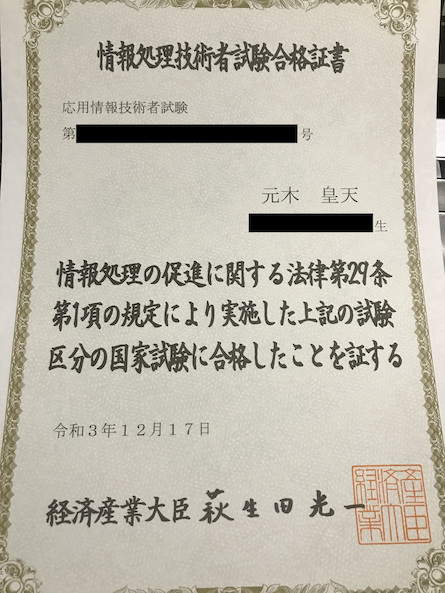 情報処理技術者試験合格証書
応用情報技術者試験
第 号
元木 皇天
生
情報処理の促進に関する法律第29条
第1項の規定により実施した上記の試験
区分の国家試験に合格したことを証する
令和3年12月17日
経済産業大臣 萩生田光一